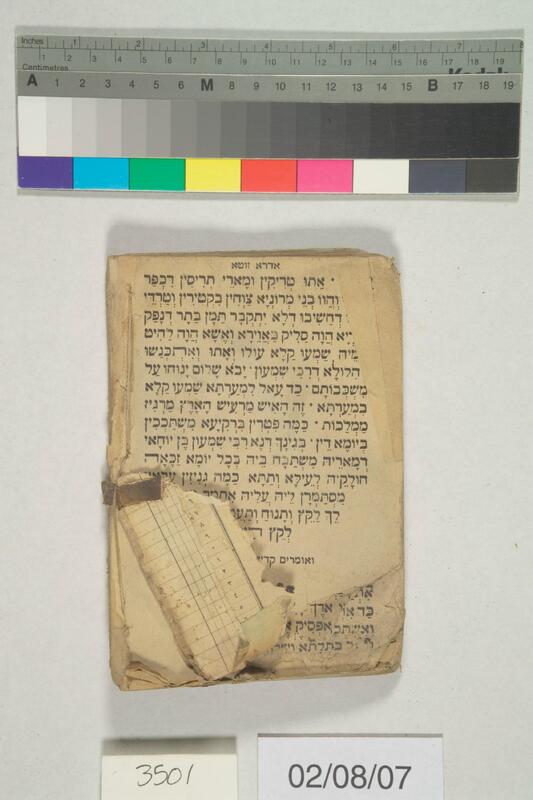 Inches 1 2 3 4 5 6 7 8
Centimetres 1 2 3 4 5 6 7 8 9 10 11 12 13 14 15 16 17 18 19
Kodak
A 1 2 3 4 5 6 M 8 9 10 11 12 13 14 15 B 17 18 19
אדרא זוטא
אתו טריקין ומארי תריסין דכפר
והוו בני מרוניא צווחין בקטירין וטרדי
דחשיבו דלא יתקבר תמן בתר דנפק
הוה סליק באוירא ואשא הוה להיט
שמעו קלא עולו ואתו ואתכנשו
הלולא דרבי שמעון יבא שלום ינוחו על
משכבותם כד עאל למערתא שמעו קלא
במערתא זה האיש מרעיש הארץ מרגיז
ממלכות כמה פטרין ברקיעא משתככין
ביומא דין בגינך דנא רבי שמעון בן יוחאי
דמאריה משתבח ביה בכל יומא זכאה
חולקיה לעילא ותתא כמה גניזין
מסתמרן ליה עליה אתמר
לך לקץ ותנוח
לקץ
ואומרים קדיש
3501
02/08/07